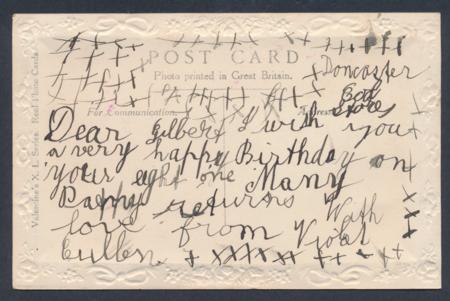 POST CARD
Photo printed in Great Britain.
Doncaster
For Communication.
Address
Valentine's X. L. Series. Real Photo Cards
Dear Gilbert I wish you
a very happy Birthday on
your eght one Many
Happy returns With
love from Violet
Cullen